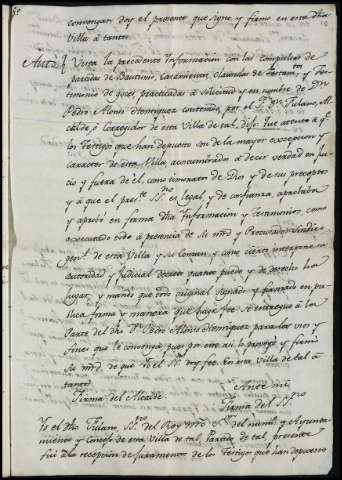 convengan doy el presente que signo y firmo en esta dha
villa â tantos.
Auto{ Vista la precedente Informacion con las compulsas de
partidas de Bautismo, Casamientos, clausulas de Testam.tos y Tes-
timonio de goces, practicadas â solicitud y en nombre de Dn
Pedro Alonso Dominguez contenido, por el S.r Dn Fulano, Al-
calde, ô Corregidor de esta Villa de tal, dijo: Que atento a q.e
los Testigos que han depuesto son de la mayor excepcion y
caracter de esta Villa, acostumbrados a decir verdad en jui-
cio y fuera de èl, como timoratos de Dios y de sus preceptos
y â que el pres.te SS.no es legal, y de confianza, aprobaba
y aprobò en forma dha Informacion y Testimonios, como
executado todo â presencia de Su mrd y Procurador Sindico
gen.l de esta Villa y su Comun, y a ma cierto interponia su
autoridad y judicial decreto quanto puede y de derecho ha
lugar, y mandò que todo original signado y firmado en pu-
blica forma y manera que haga fee se entregue â la
Parte del dho Dn Pedro Alonso Dominguez para los usos y
fines que le convenga, pues por este asi lo proveyò y firmò
Su mrd. de que Yo el SS.no doy fee. En esta villa de tal â
tantos
Firma del Alcalde
Ante mi
Firma del SS.no
Yo el dho Fulano, SS.no del Rey nro S.r del num.o y Ayunta-
miento y Concejo de esta villa de tal, Partido de tal, presente
fuì â la recepcion de juramentos de los Testigos que han depuesto